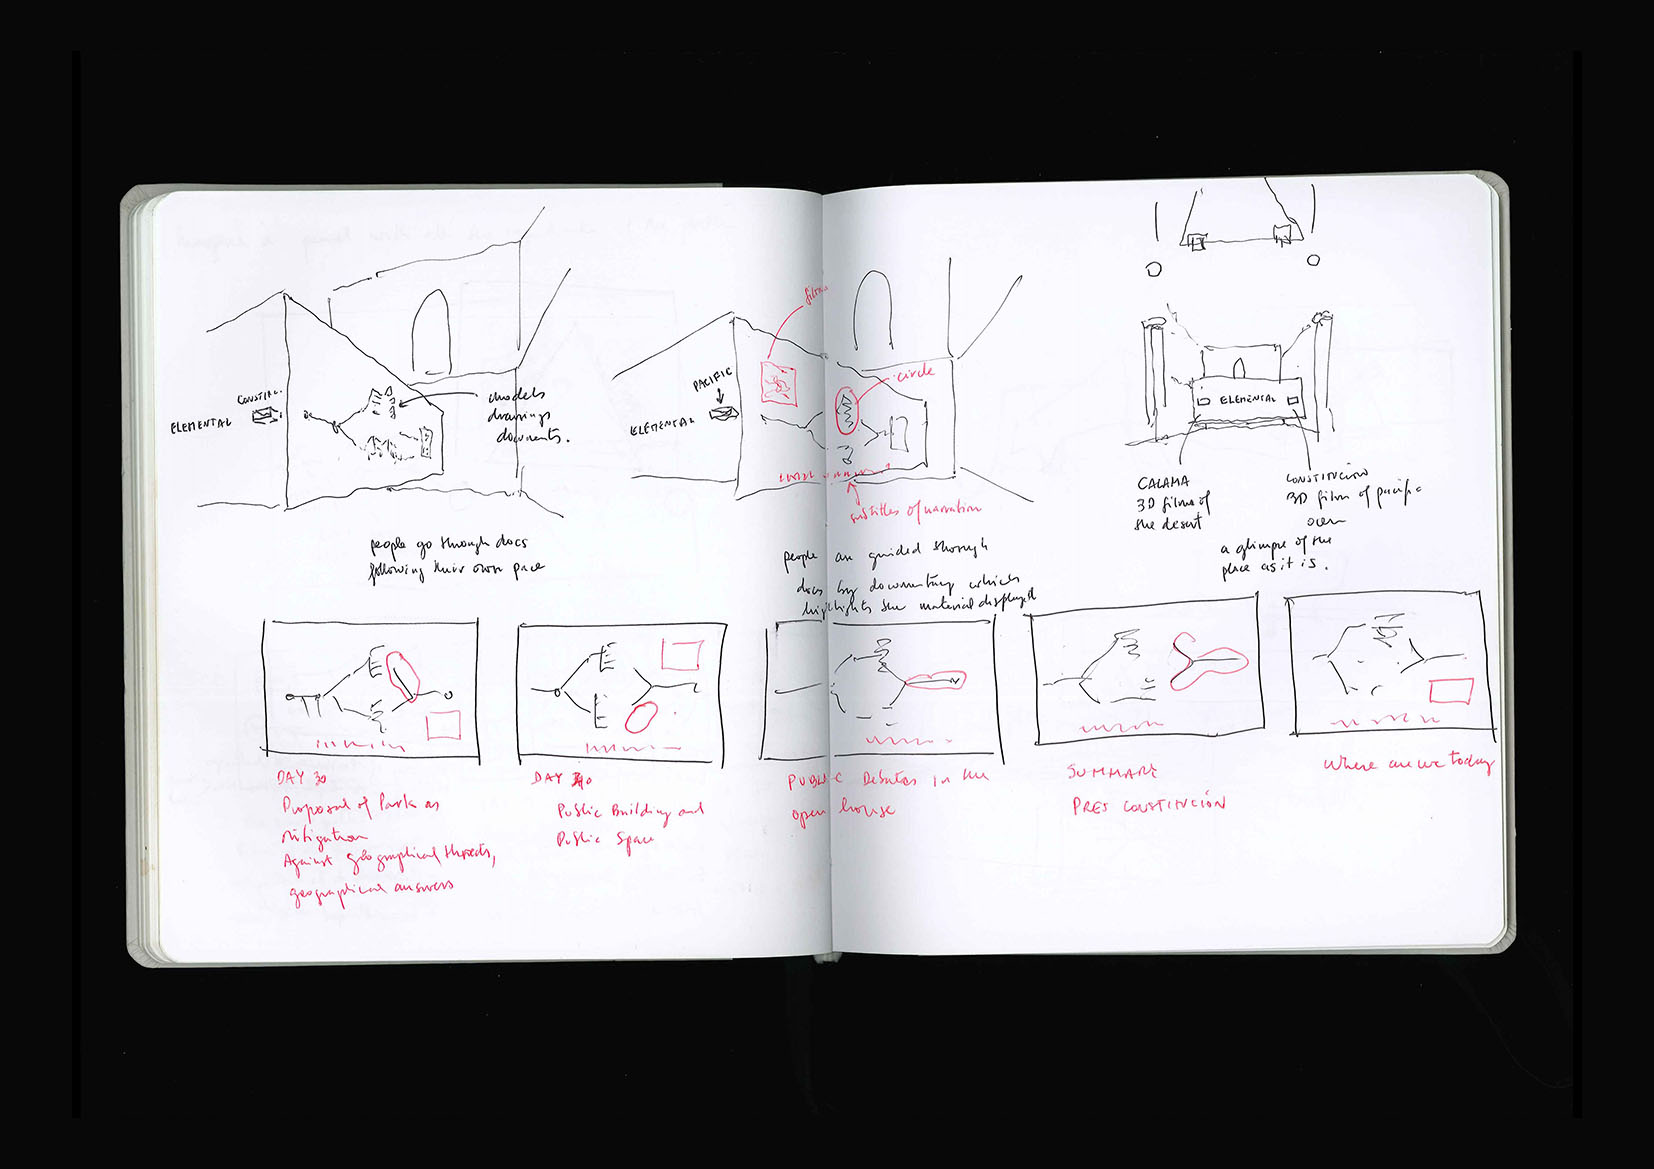 CONSTIT.
ELEMENTAL
models
drawings
documents.
people go through docs
following their own pace
films
PACIFIC
ELEMENTAL
circle
subtitles of narration
people are guided through
docs by documentary which
highlights the material displayed
ELEMENTAL
CALAMA
3D films of
the desert
CONSTITUCIÓN
3D film of pacific
ocean
a glimpse of the
place as it is.
DAY 30
Proposal of Park as
mitigation
Against geographical threats,
geographical answers
DAY 40
Public Building and
Public Space
PUBLIC Debates in the
open house
SUMMARY
PRES CONSTITUCIÓN
Where are we today